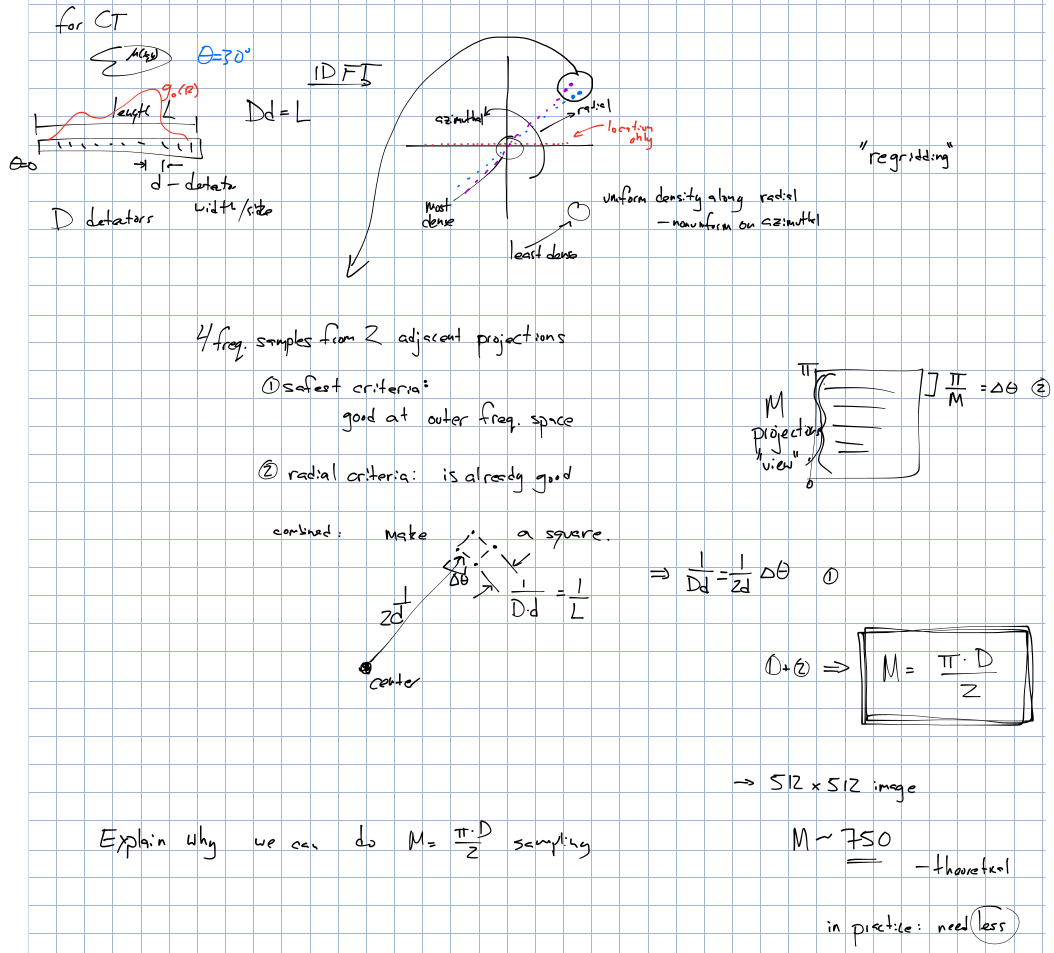 for CT
μ(x,y)
θ=30°
1D FT
g₀(R)
length L
Dd = L
θ=0
d – detector
width/size
D detectors
azimuthal
radial
location
only
most
dense
least dense
uniform density along radial
– nonuniform on azimuthal
"regridding"
4 freq. samples from 2 adjacent projections
① safest criteria:
good at outer freq. space
② radial criteria: is already good
π
M
projections
"view"
0
] π/M = Δθ ②
combined: make a square.
Δθ
1/2d
1/D·d = 1/L
center
⇒ 1/Dd = 1/2d Δθ ①
①+② ⇒ M = π·D/2
→ 512 x 512 image
M ~ 750
– theoretical
in practice: need less
Explain why we can do M = π·D/2 sampling